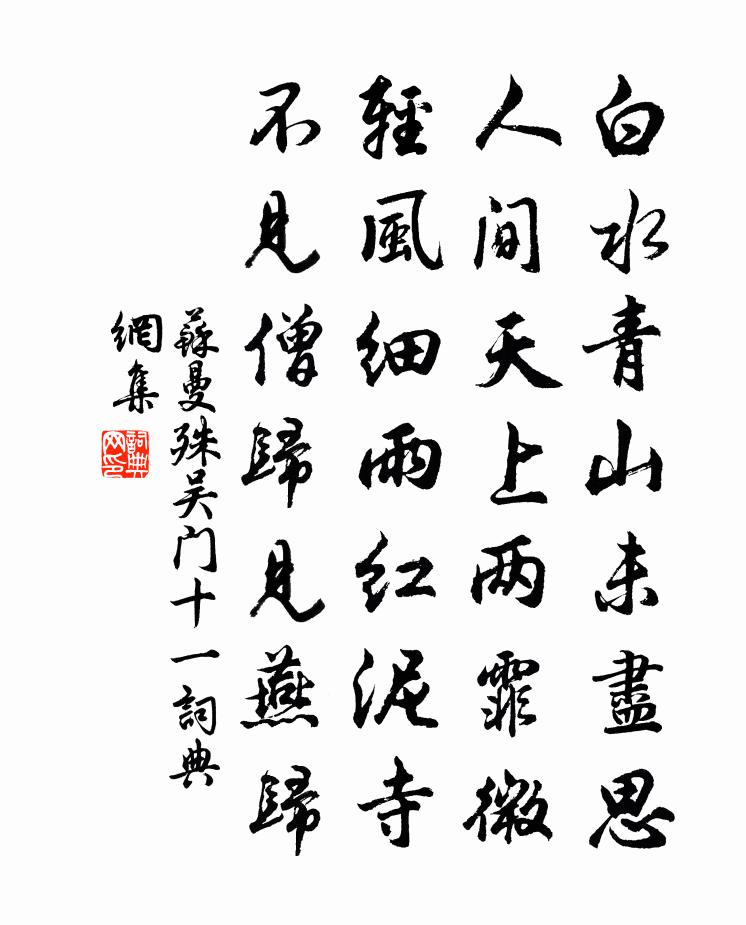 白水青山未盡思
人间天上两霏微
輕風細雨紅泥寺
不見僧歸見燕歸
蘇曼殊吴门十一詞典
網集
詞典
网印